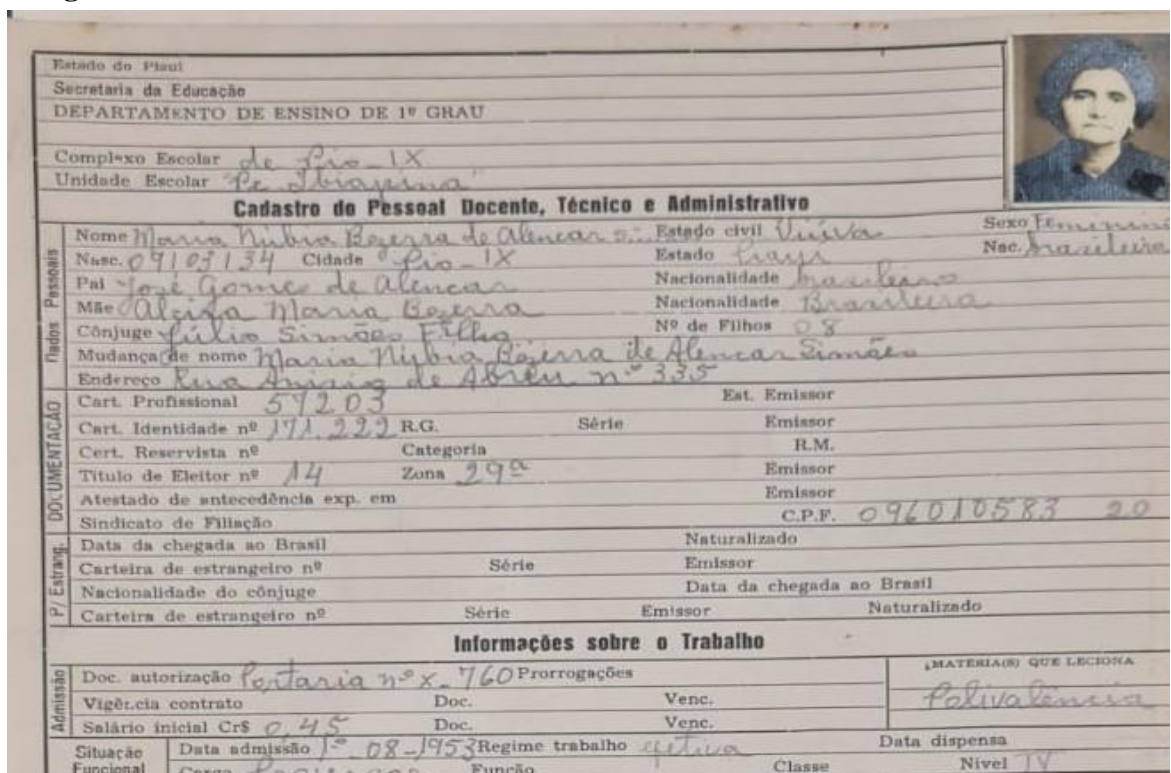 Estado do Piauí
Secretaria da Educação
DEPARTAMENTO DE ENSINO DE 1º GRAU
Complexo Escolar de Pio_IX
Unidade Escolar "Pe Ibiapina"
Cadastro do Pessoal Docente, Técnico e Administrativo
Dados Pessoais
Nome Maria Núbia Bezerra de Alencar Estado civil Viúva Sexo Feminino
Nasc. 09/03/34 Cidade Pio_IX Estado Piauí Nac. brasileira
Pai José Gomes de Alencar Nacionalidade brasileiro
Mãe Alcina Maria Bezerra Nacionalidade Brasileira
Cônjuge Júlio Simões Filho Nº de Filhos 08
Mudança de nome Maria Núbia Bezerra de Alencar Simões
Endereço Rua Anízio de Abreu nº 335
DOCUMENTAÇÃO
Cart. Profissional 57203 Est. Emissor
Cart. Identidade nº 171.222 R.G. Série Emissor
Cert. Reservista nº Categoria R.M.
Título de Eleitor nº 14 Zona 29ª Emissor
Atestado de antecedência exp. em Emissor
Sindicato de Filiação C.P.F. 096010583 20
P/ Estrang.
Data da chegada ao Brasil Naturalizado
Carteira de estrangeiro nº Série Emissor
Nacionalidade do cônjuge Data da chegada ao Brasil
Carteira de estrangeiro nº Série Emissor Naturalizado
Informações sobre o Trabalho
Admissão
Doc. autorização Portaria nº x_760 Prorrogações MATÉRIA(S) QUE LECIONA
Vigência contrato Doc. Venc. Polivalência
Salário inicial Cr$ 0,45 Doc. Venc.
Situação Funcional
Data admissão 1º_08_1953 Regime trabalho efetiva Data dispensa
Cargo Professor Função Classe Nivel IV